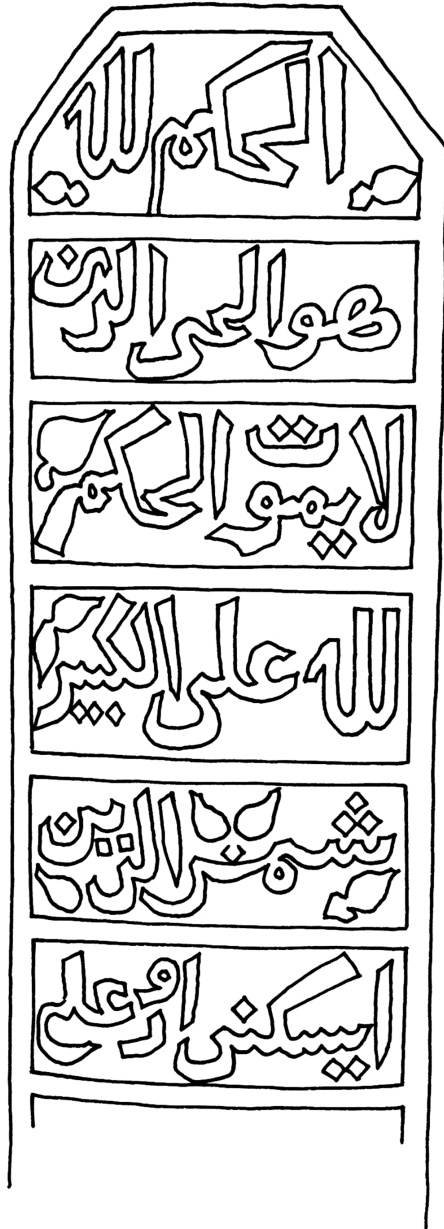 الحكم لله
هو الحى الذى
لا يموت الحكم
لله على الكبير
شمس الدين
ايسكنى